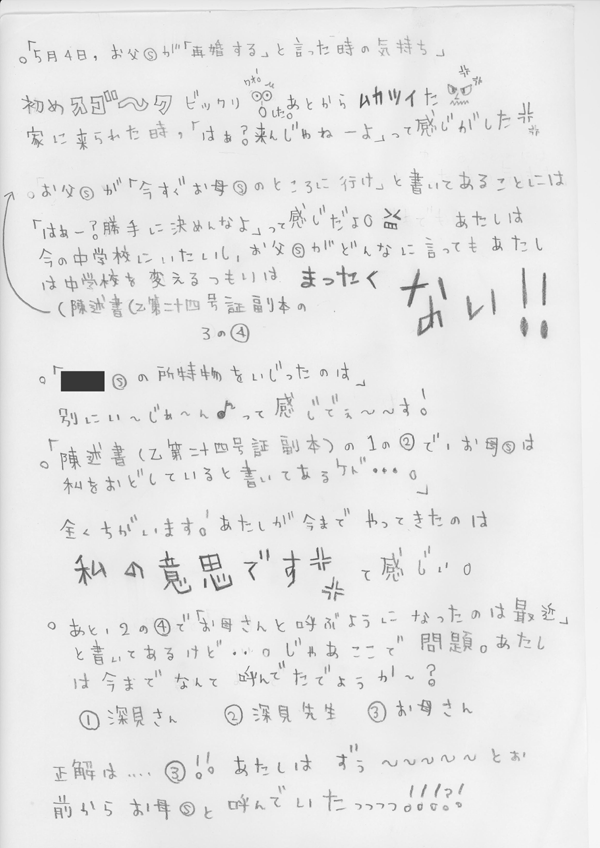 。「5月4日，お父Ⓢが「再婚する」と言った時の気持ち」
初め スゴ〜ク ビックリした。あとからムカツイた
家に来られた時っ「はぁ?来んじゃねーよ」って感じがした
。お父Ⓢが「今すぐお母Ⓢのところに行け」と書いてあることには
「はぁー?勝手に決めんなよ」って感じだよ。 あたしは
今の中学校にいたいし，お父Ⓢがどんなに言ってもあたし
は中学校を変えるつもりは まったく ない!!
(陳述書(乙第二十四号証副本の
3の④
。「 Ⓢの所特物をいじったのは」
別にい〜じぁ〜ん♪って感じでぇ〜〜す!
。「陳述書(乙第二十四号証副本)の1の②で，お母Ⓢは
私をおどしていると書いてあるケド…。」
全くちがいます!あたしが今までやってきたのは
私の意思です て感じぃ。
。あと，2の④で「お母さんと呼ぶようになったのは最近」
と書いてあるけど…。じゃあここで 問題。あたし
は今までなんて呼んでたでょうか〜?
①深見さん ②深見先生 ③お母さん
正解は…. ③!! あたしは ずぅ〜〜〜〜〜とぉ
前からお母Ⓢと呼んでいたっっっっ!!!?!